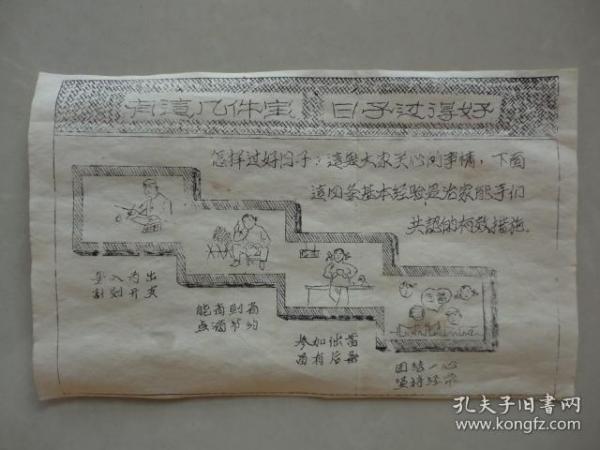 有這几件宝 日子过得好
怎样过好日子？這是大家关心的事情，下面
這四条基本经验是治家能手们
共認的有效措施。
量入为出
計划开支
能省則省
点滴节约
参加储蓄
留有后备
团结一心
坚持经常
孔夫子旧书网
www.kongfz.com